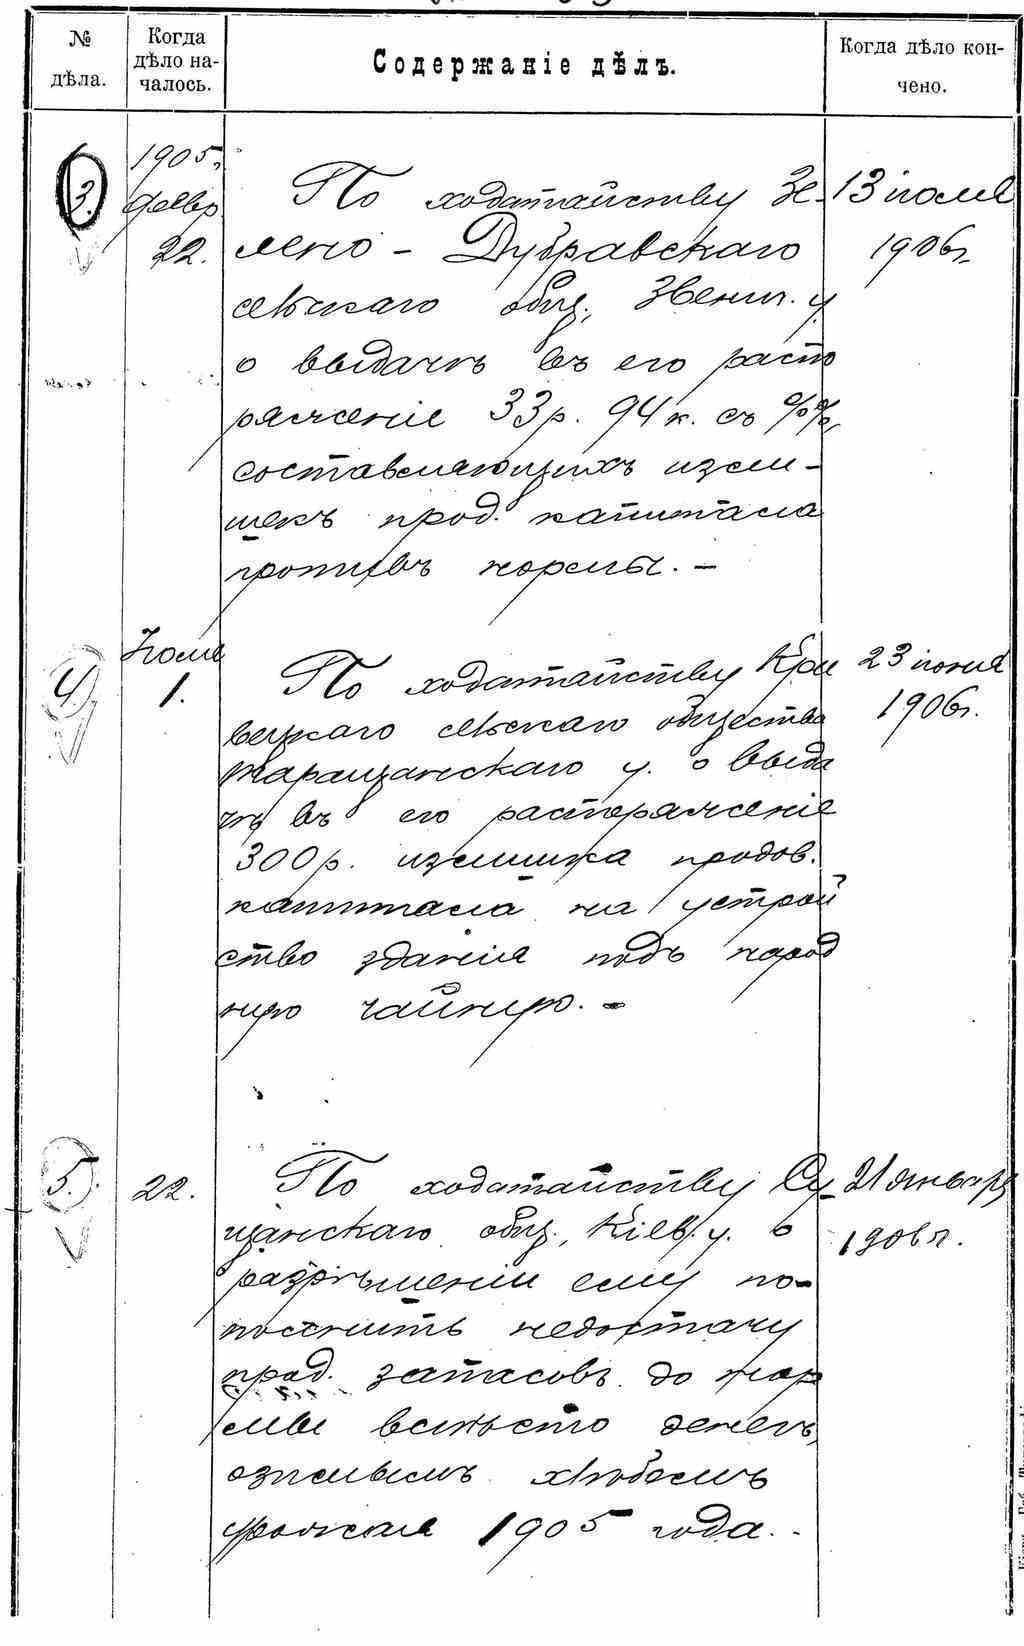 № дѣла.
Когда дѣло на-
чалось.
Содержаніе дѣлъ.
Когда дѣло кон-
чено.
3.
1905г.
Февр.
22.
По ходатайству Зе-
лено-Дубравскаго
сельскаго общ., Звениг. у.
о выдачѣ въ его распо
ряженіе 33 р. 94 к. съ %%,
составляющихъ изли-
шекъ прод. капитала
противъ нормы. –
13 іюля
1906г.
4.
Іюля
1.
По ходатайству Кри
вецкаго сельскаго общества
Таращанскаго у. о выда
чѣ въ его распоряженіе
300 р. излишка продов.
капитала на устрой
ство зданія подъ народ
ную чайную. –
23 іюня
1906г.
5.
22.
По ходатайству Су-
щанскаго общ., Кіев. у. о
разрѣшеніи ему по-
полнить недостачу
прод. запасовъ до нор
мы вмѣсто денегъ,
озимымъ хлѣбомъ
урожая 1905 года. -
21 январ
1906 г.